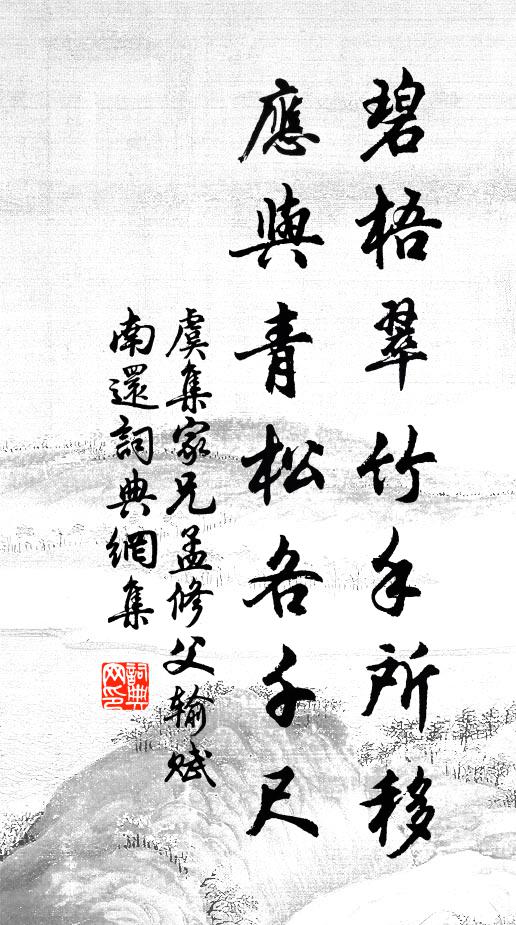 碧梧翠竹手所移
應與青松各千尺
虞集家兄孟修父輸賦
南還詞典網集
詞典网印